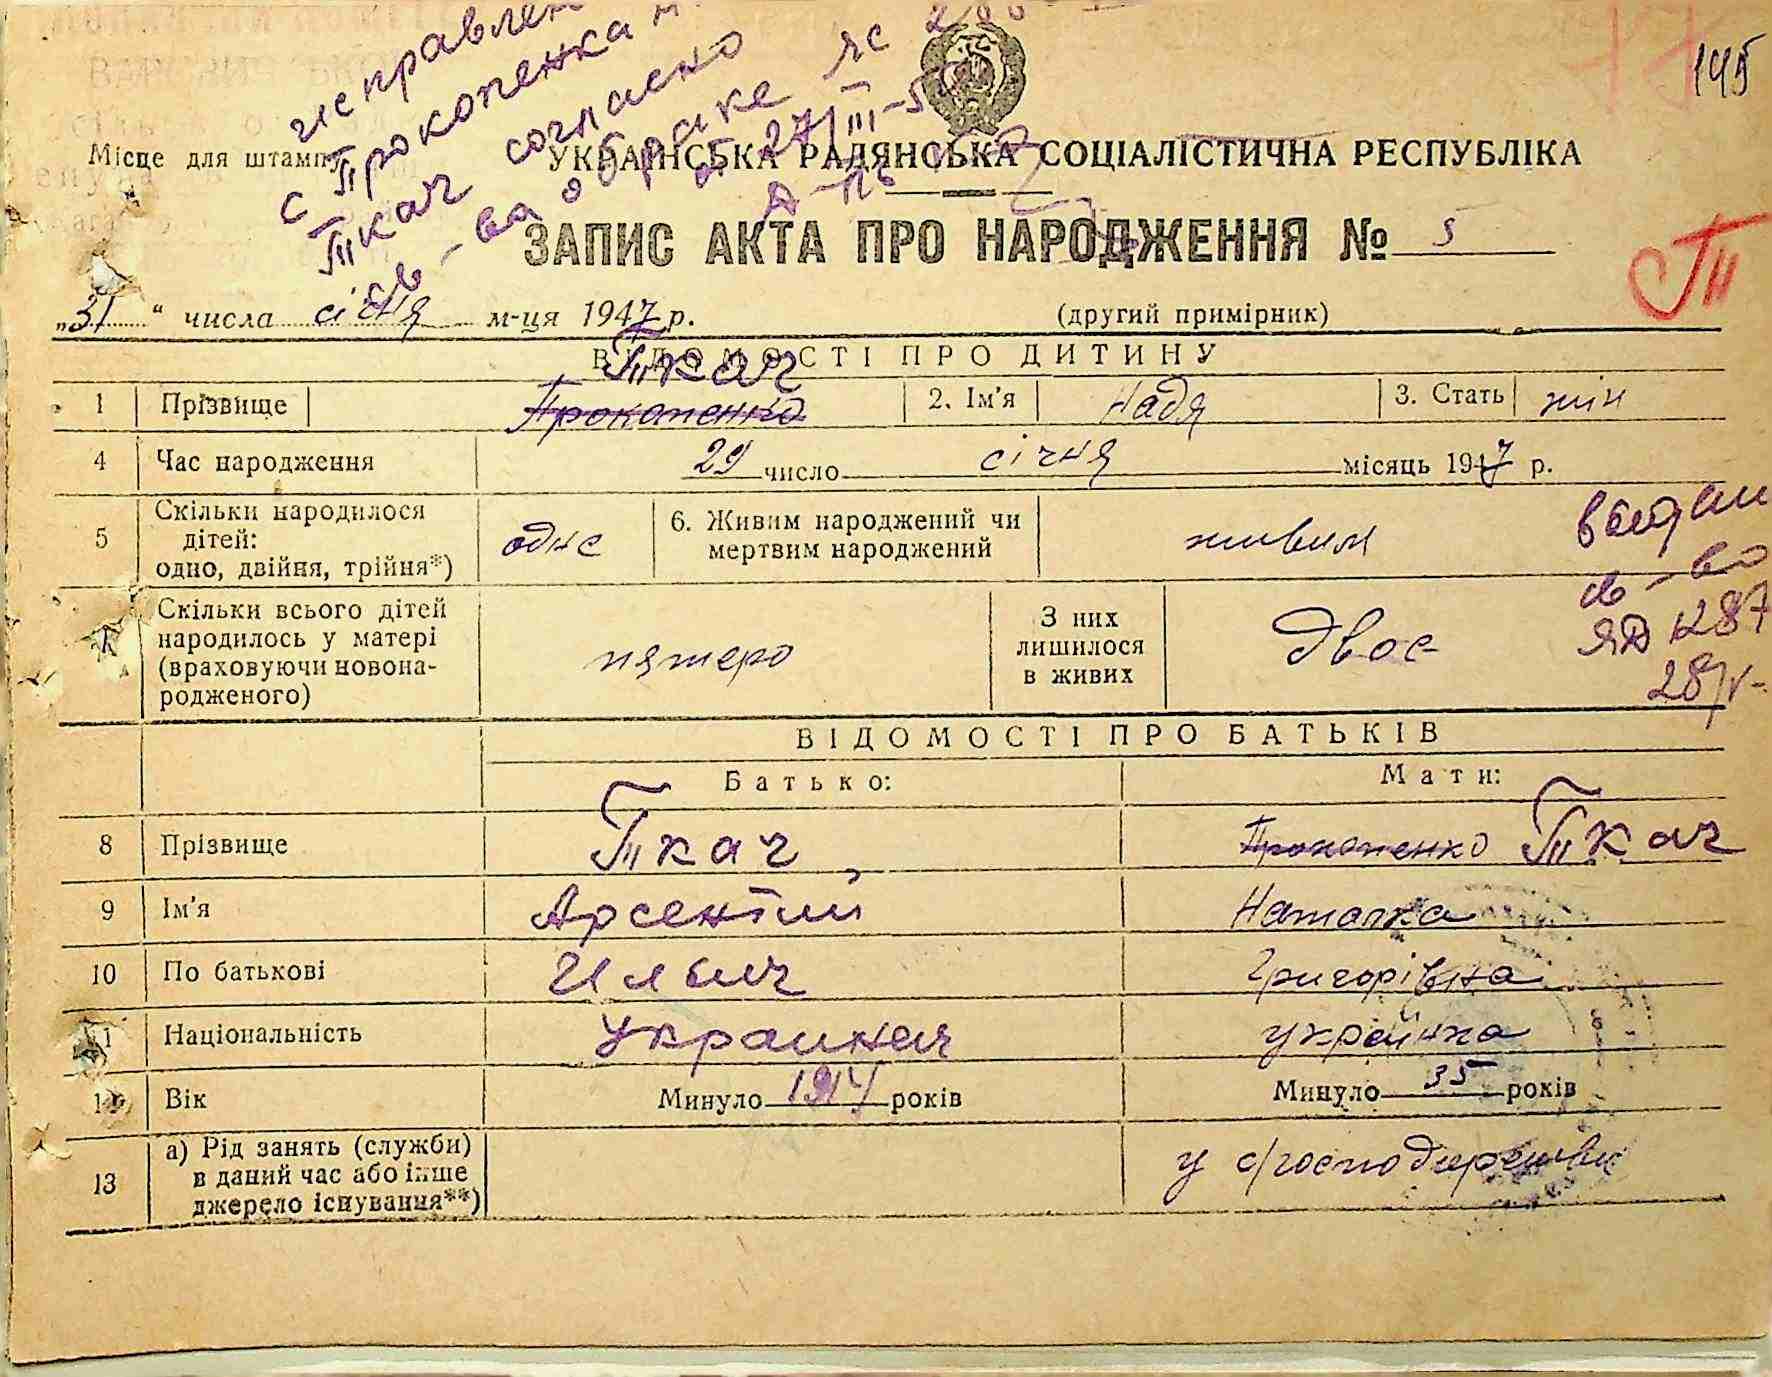 исправлен
с Прокопенка н
Ткач согласно
св-ва о браке яс
от 27/III-5
145
Місце для штампу
УКРАЇНСЬКА РАДЯНСЬКА СОЦІАЛІСТИЧНА РЕСПУБЛІКА
ЗАПИС АКТА ПРО НАРОДЖЕННЯ № 5
"31" числа січня м-ця 1947 р. (другий примірник)
ВІДОМОСТІ ПРО ДИТИНУ
Ткач
1 Прізвище Прокопенко 2. Ім'я Надя 3. Стать жін
4 Час народження 29 число січня місяць 1947 р.
5 Скільки народилося дітей: одно, двійня, трійня*) одне 6. Живим народжений чи мертвим народжений живим
выдан
св-во
ЯД 1287
28/V-
Скільки всього дітей народилось у матері (враховуючи новонародженого) пятеро З них лишилося в живих двоє
ВІДОМОСТІ ПРО БАТЬКІВ
Батько: Мати:
8 Прізвище Ткач Прокопенко Ткач
9 Ім'я Арсентий Наталка
10 По батькові Ильич Григорівна
11 Національність Украинец українка
12 Вік Минуло 1914 років Минуло 35 років
13 а) Рід занять (служби) в даний час або інше джерело існування**) у с/господарстві